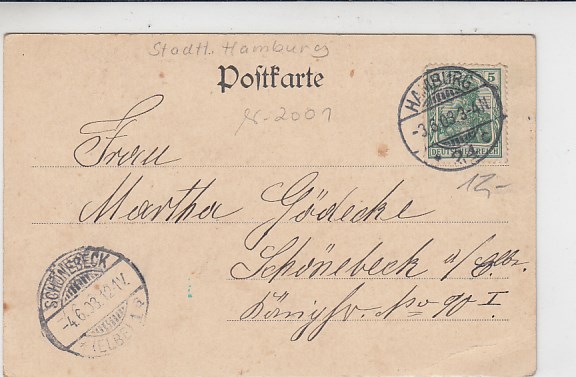 Stadtl. Hamburg
Postkarte
5
DEUTSCHES REICH
HAMBURG
-3.6.03.3-4N.
12,-
Frau
Martha Gödecke
Schönebeck a/Elbe.
Königstr. No 90 I.
SCHÖNEBECK
-4.6.03.12-1V.
(ELBE) 1a